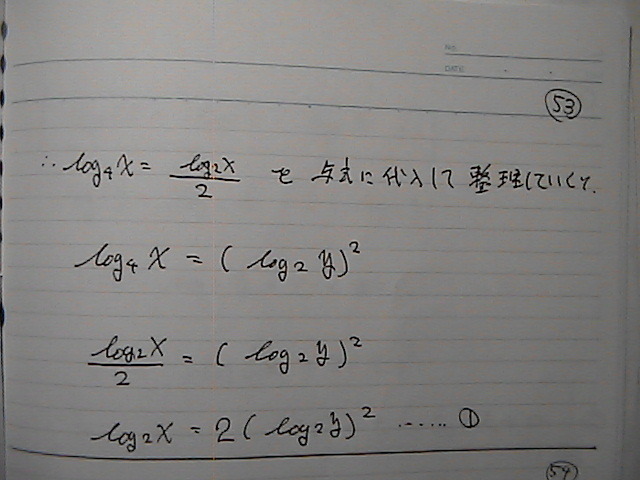 No.
DATE
53
∴ log₄X = log₂X/2 を 与式に代入して 整理していくと、
log₄X = (log₂y)²
log₂X/2 = (log₂y)²
log₂X = 2(log₂y)² ...... ①
54